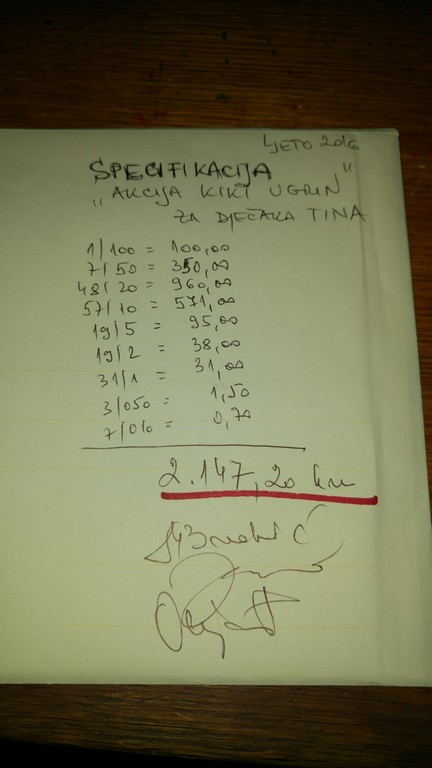 LJETO 2016
SPECIFIKACIJA
„AKCIJA KIKI UGRIN"
ZA DJEČAKA TINA
1/100 = 100,00
7/50 = 350,00
48/20 = 960,00
57/10 = 571,00
19/5 = 95,00
19/2 = 38,00
31/1 = 31,00
3/050 = 1,50
7/010 = 0,70
2.147,20 kn